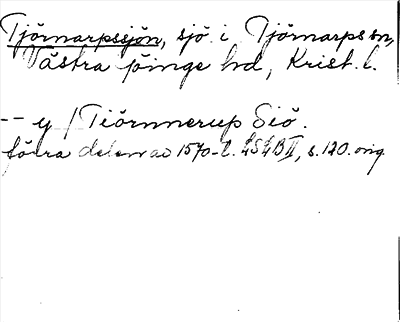 Tjörnarpssjön, sjö i Tjörnarps sn,
Västra Göinge hd, Krist. l.
-- y / Tiörnnerup Siö.
förra delen av 1570-t. LSLB II, s. 120. orig